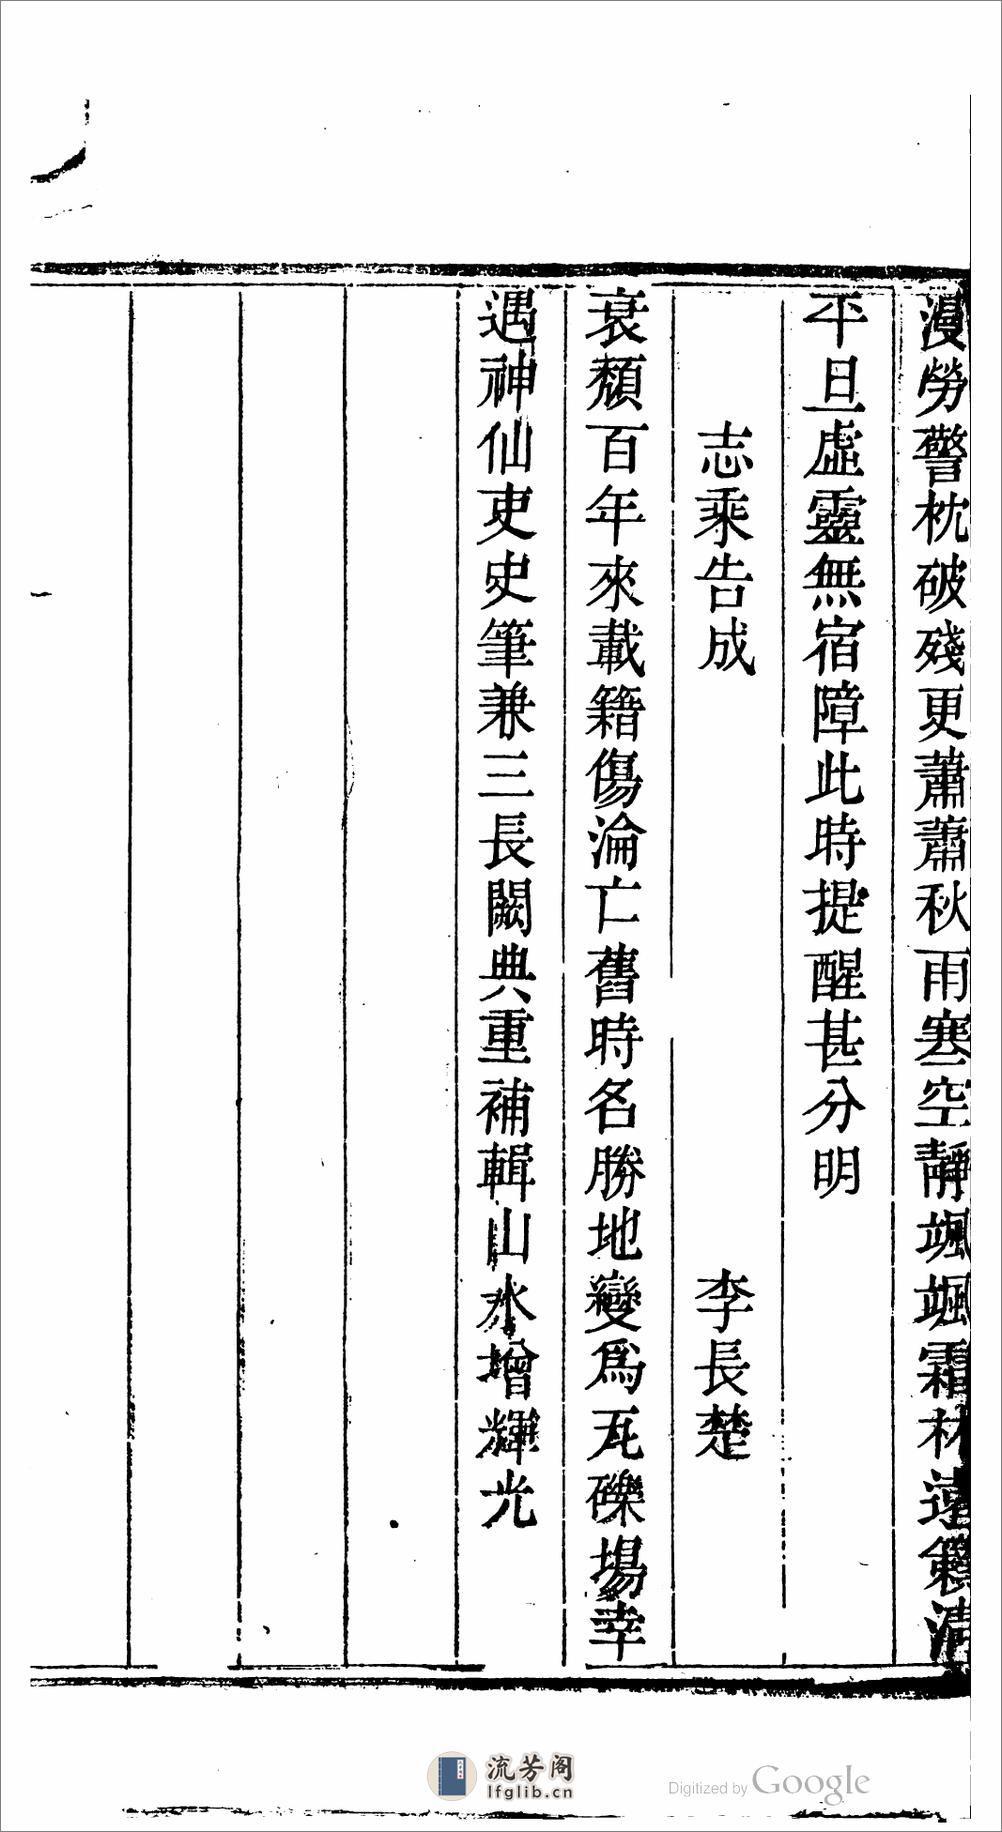 漫勞警枕破殘更蕭蕭秋雨寒空靜颯颯霜林遠籟清
平旦虛靈無宿障此時提醒甚分明
志乘告成 李長楚
衰頹百年來載籍傷淪亡舊時名勝地變爲瓦礫場幸
遇神仙吏史筆兼三長闕典重補輯山水增輝光
流芳阁
lfglib.cn
Digitized by Google